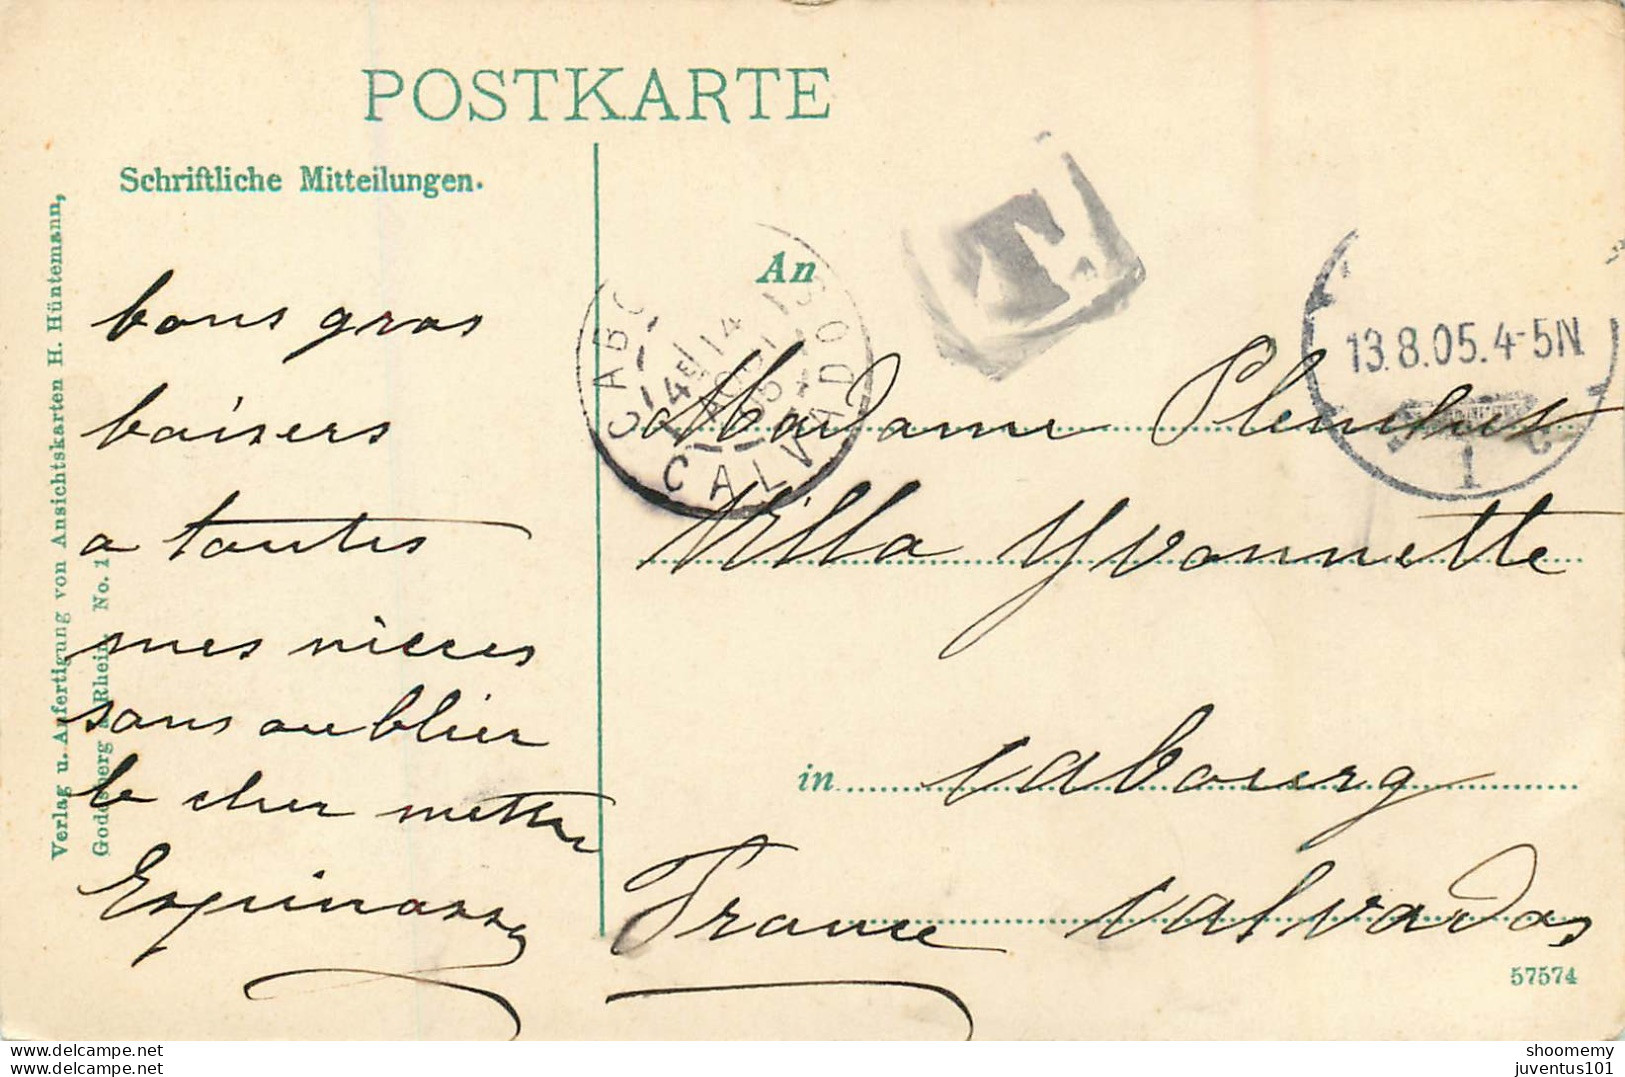 POSTKARTE
Schriftliche Mitteilungen.
Verlag u. Anfertigung von Ansichtskarten H. Hüntemann,
Godesberg a. Rhein. No. 1
bons gros
baisers
a toutes
mes nieces
sans oublier
le cher
Espinassy
T.
An
CABOURG
CALVADOS
4E/ 14
AOUT
05
13.8.05.4-5N
1 c
Madame
Villa Yvonnette
in Cabourg
France Calvados
57574
shoomemy
juventus101
www.delcampe.net